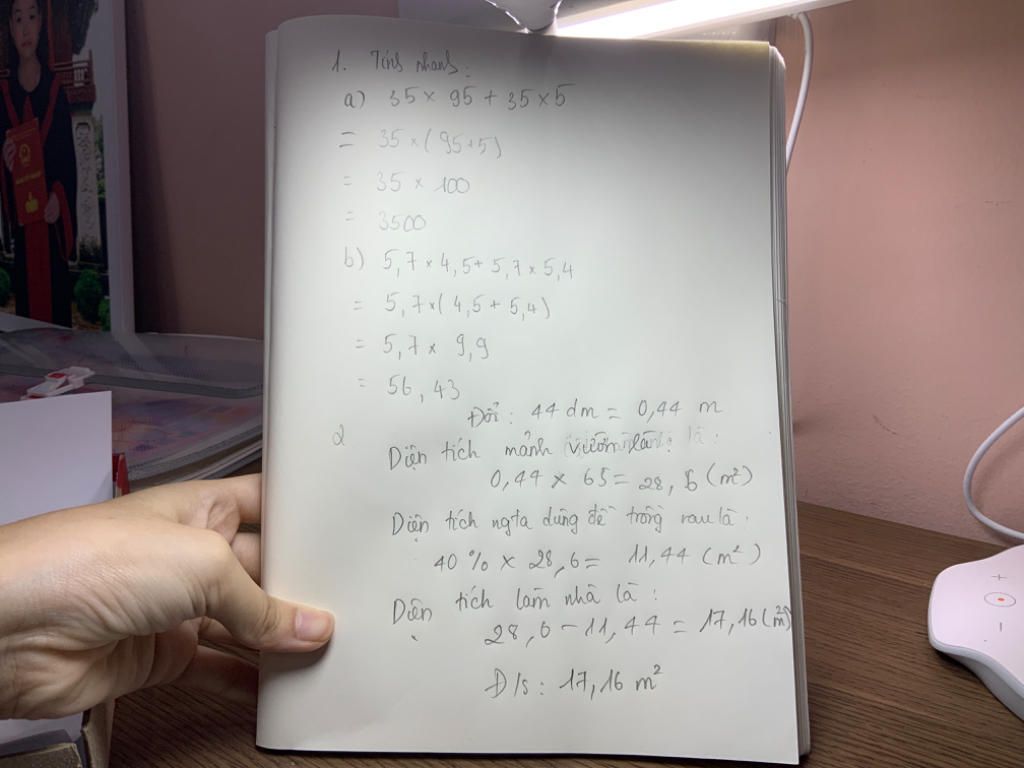 1. Tính nhanh:
a) 35 × 95 + 35 × 5
= 35 × (95+5)
= 35 × 100
= 3500
b) 5,7 × 4,5 + 5,7 × 5,4
= 5,7 × (4,5 + 5,4)
= 5,7 × 9,9
= 56,43
Đổi: 44 dm = 0,44 m
2 Diện tích mảnh vườn là:
0,44 × 65 = 28,6 (m²)
Diện tích ngta dùng để trồng rau là:
40% × 28,6 = 11,44 (m²)
Diện tích làm nhà là:
28,6 - 11,44 = 17,16 (m²)
Đ/s: 17,16 m²